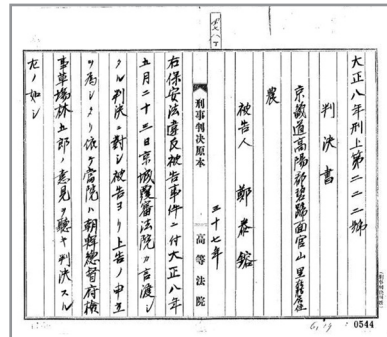 大正八年刑上第二二二號
判決書
京畿道高陽郡碧蹄面官山里籍居住
農
被告人 鄭泰鎔
三十七年
刑事判決原本
高等法院
右保安法違反被告事件ニ付大正八年
五月二十三日京城覆審法院カ言渡シ
タル判決ニ對シ被告ヨリ上告ノ申立
ヲ為シタリ依テ當院ハ朝鮮總督府檢
事草場林五郎ノ意見ヲ聽キ判決スル
左ノ如シ
0544